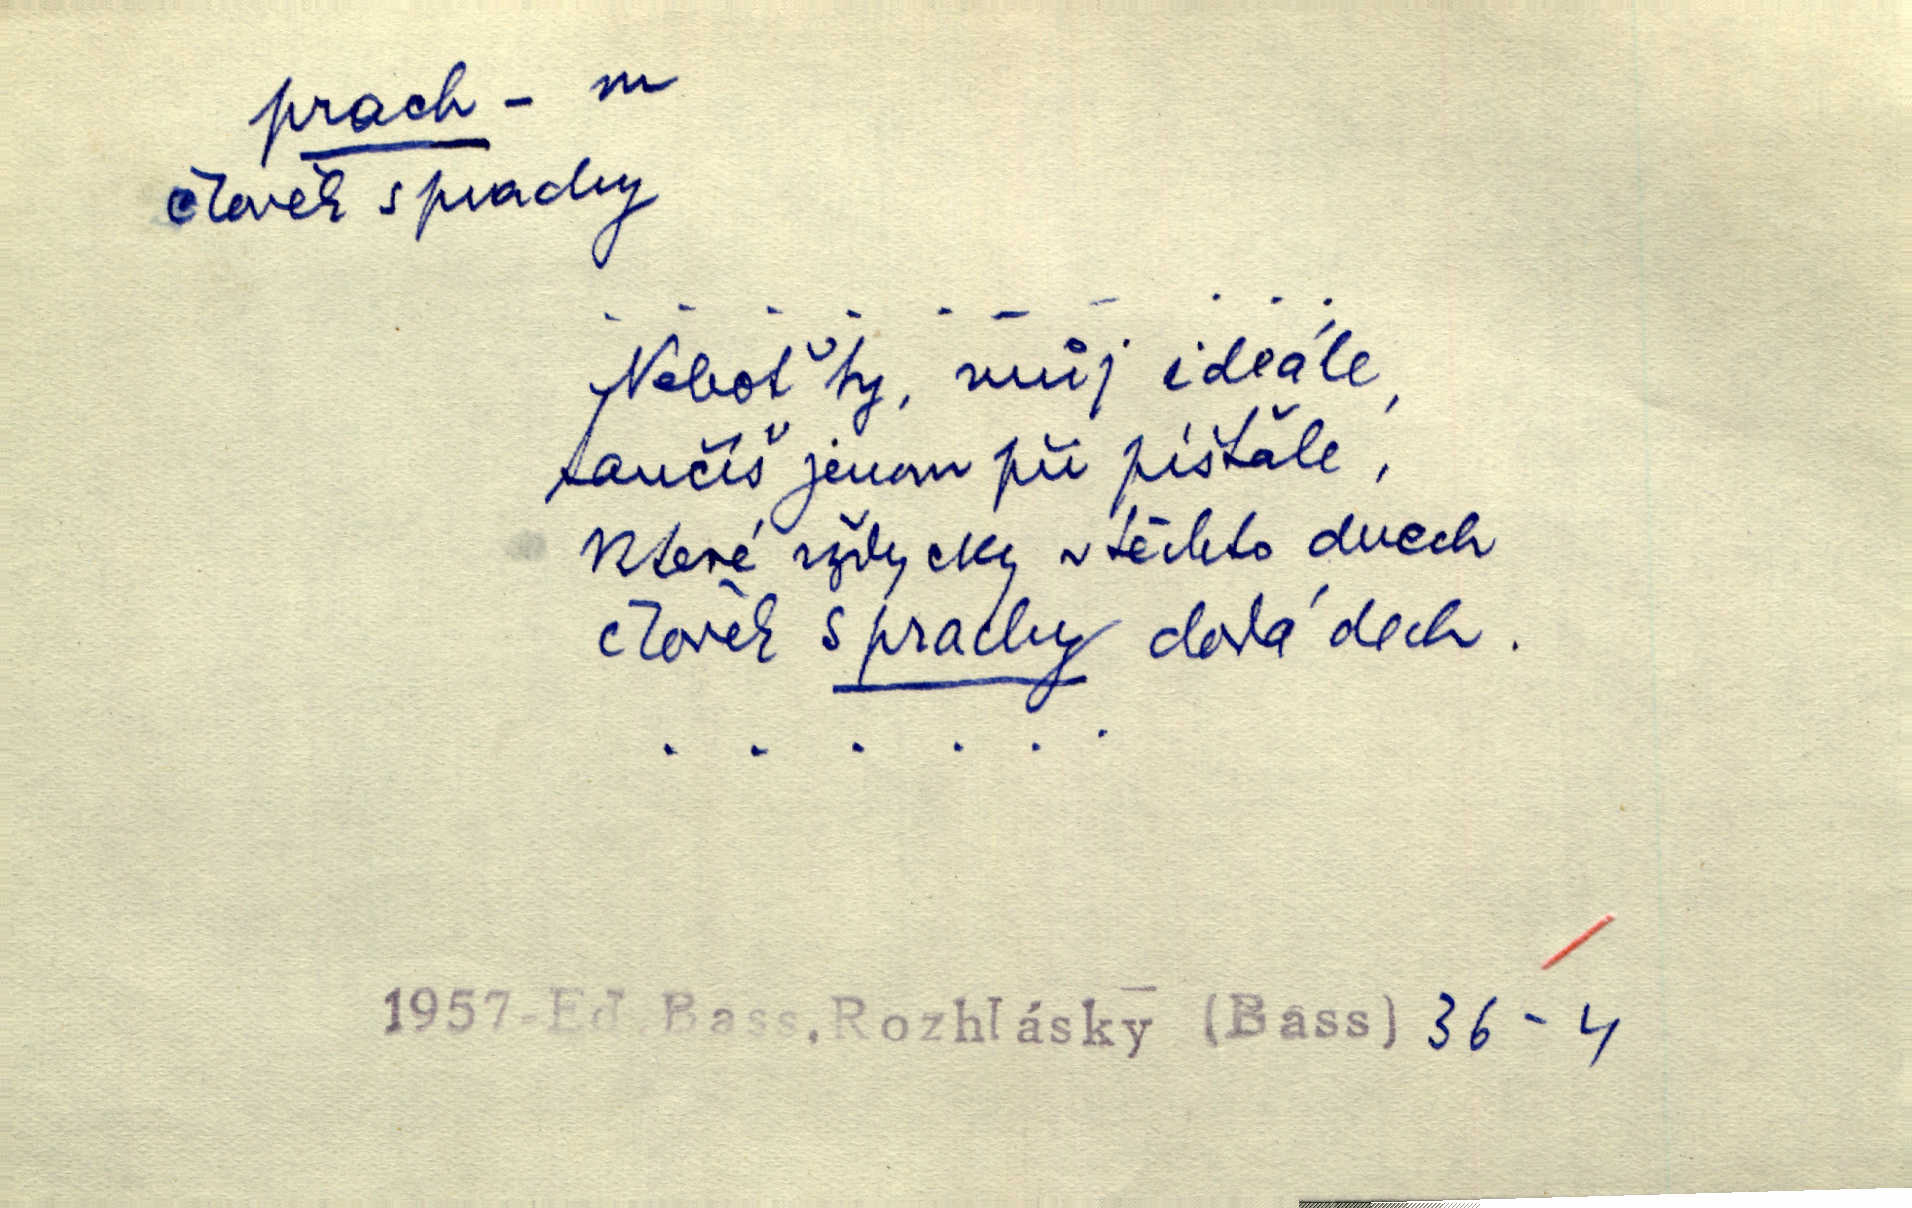 prach - m
člověk s prachy
. . . . . - - . . .
Neboť ty, můj ideále,
tančíš jenom při píšťale,
které vždycky v těchto dnech
člověk s prachy dodá dech.
. . . . . .
1957-Ed.Bass,Rozhlásky (Bass) 36-4